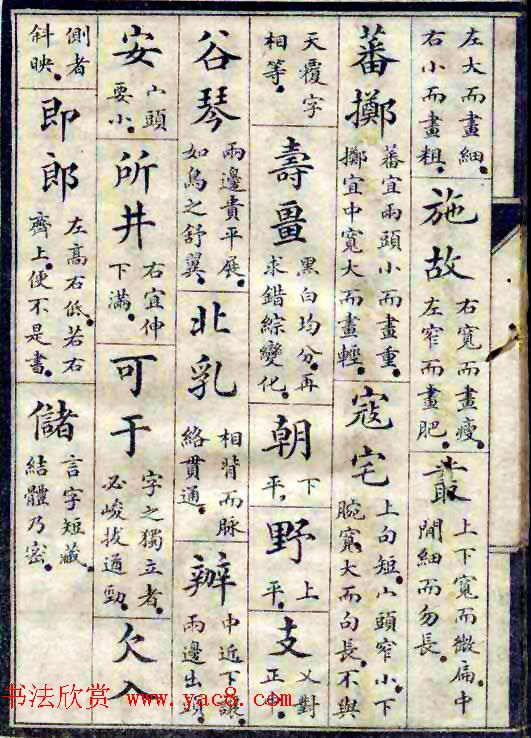 左大而畫細。
右小而畫粗。
施故
右寬而畫瘦。
左窄而畫肥。
叢
上下寬而微扁。中
間細而勿長。
蕃擲
蕃宜兩頭小而畫重。
擲宜中寬大而畫輕。
寇宅
上勾短。宀頭窄小。下
腕寬大而勾長。不與
天覆字
相等。
壽畺
黑白均分。再
求錯綜變化。
朝
下
平。
野
上
平。
支
乂對
正中。
谷琴
兩邊貴平展。
如鳥之舒翼。
北乳
相背而脉
絡貫通。
辦
中近下讓。
兩邊出頭。
安
宀頭
要小。
所井
右宜伸
下滿。
可于
字之獨立者。
必峻拔遒勁。
欠入
側者
斜映。
即郎
左高右低。若右
齊上。便不是書。
儲
言字短藏。
結體乃密。
书法欣赏 www.yac8.com